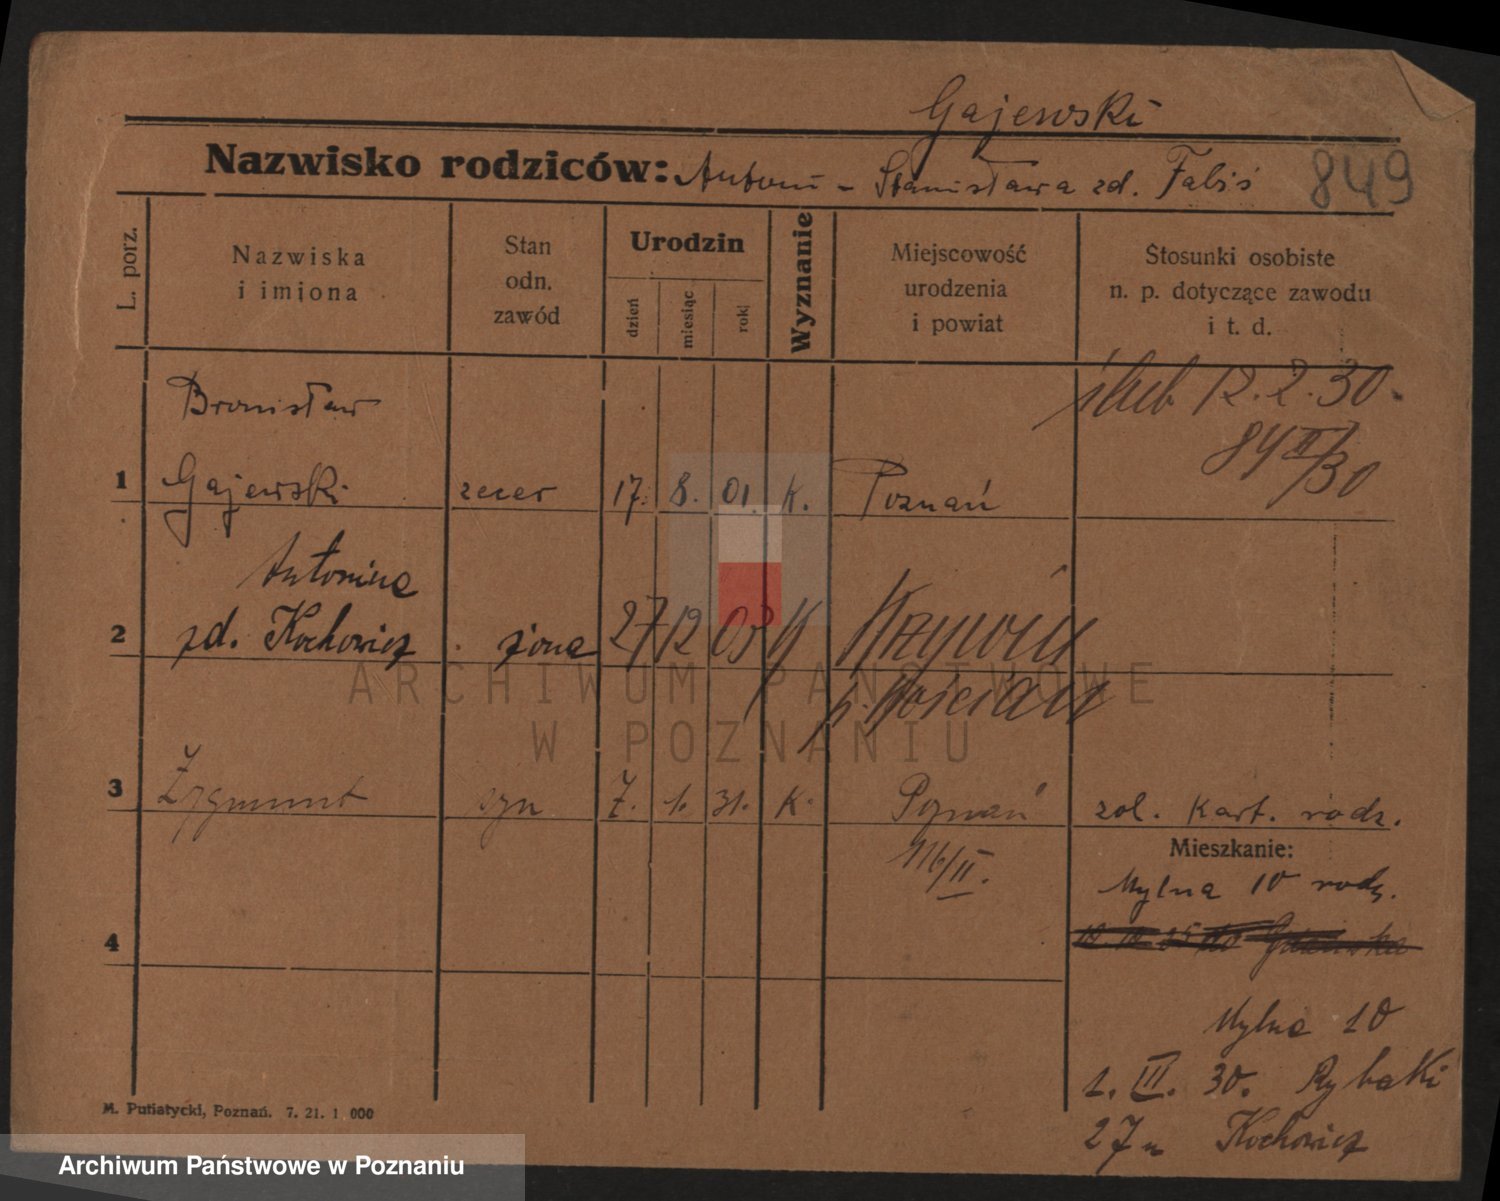 Gajewski
Nazwisko rodziców: Antoni - Stanisława zd. Fabiś
849
L. porz.
Nazwiska
i imiona
Stan
odn.
zawód
Urodzin
dzień
miesiąc
rok
Wyznanie
Miejscowość
urodzenia
i powiat
Stosunki osobiste
n. p. dotyczące zawodu
i t. d.
Bronisław
ślub 12.2.30.
84 II/30
1 Gajewski zecer 17. 8. 01. K. Poznań
Antonina
2 zd. Kochowicz żona 27 12 03 K Krzywiń
p. Kościan
ARCHIWUM PAŃSTWOWE
W POZNANIU
3 Zygmunt syn 7. 1. 31. K. Poznań zał. kart. rodz.
116/II.
Mieszkanie:
Mylna 10 rodz.
4
Mylna 10
1. III. 30. Rybaki
27 u Kochowicz
M. Putiatycki, Poznań. 7. 21. 1 000
Archiwum Państwowe w Poznaniu